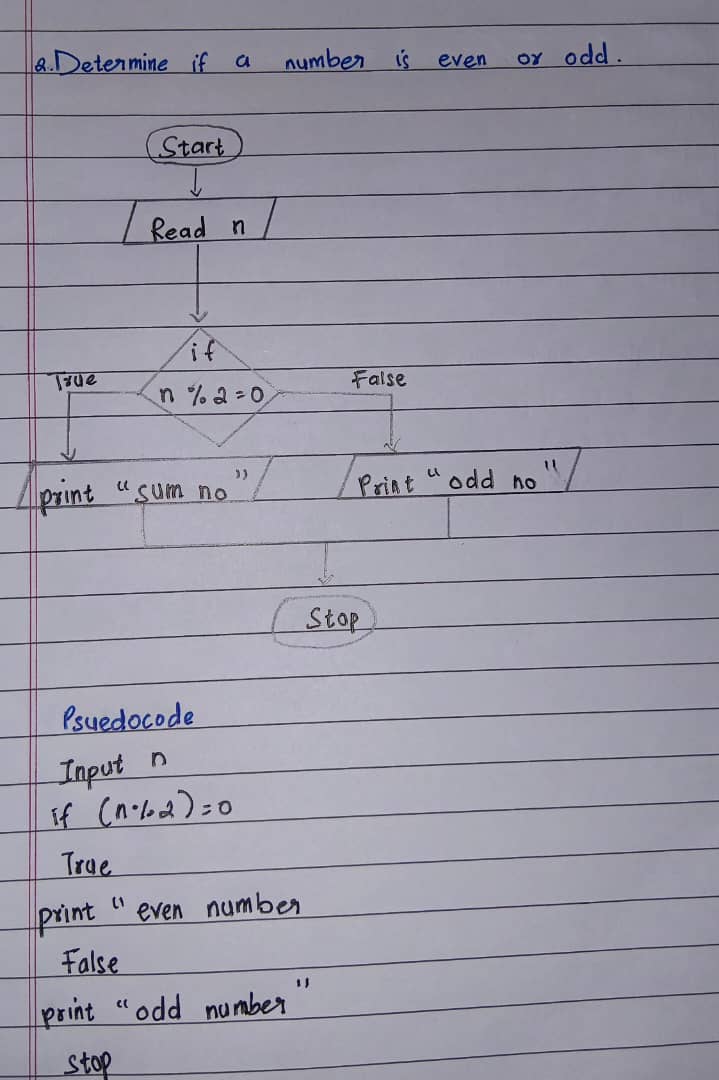 2.Determine if a number is even or odd.
Start
Read n
if
True
False
n % 2 = 0
print "sum no"
Print "odd no"
Stop
Psuedocode
Input n
if (n % 2) = 0
True
print " even number
False
print "odd number"
stop